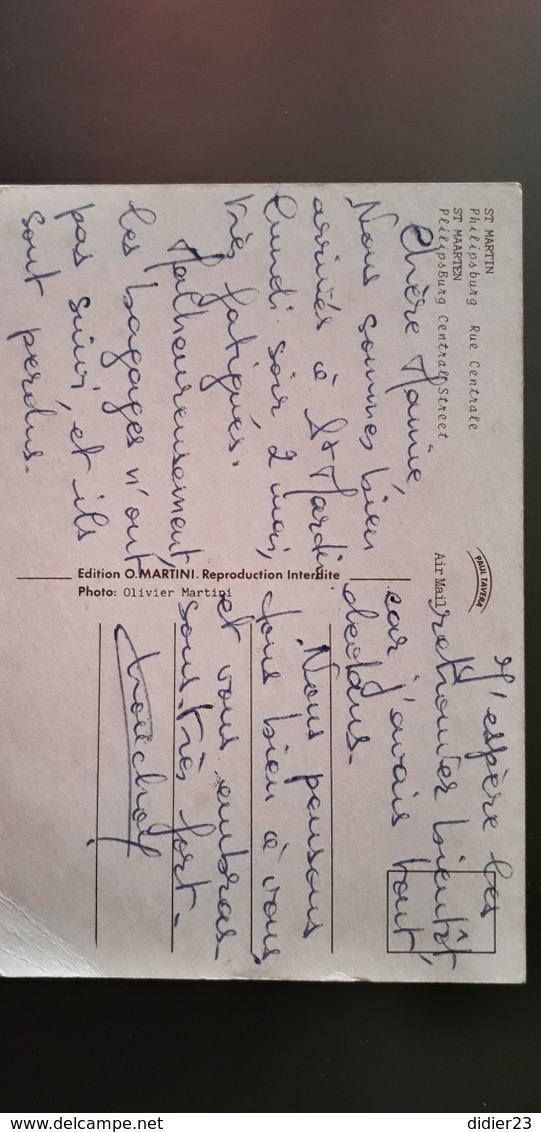 ST MARTIN
Philipsburg Rue Centrale
ST MAARTEN
Philipsburg Central Street
Chère Mamie,
Nous sommes bien
arrivés à St Martin
lundi soir 2 mai,
très fatigués.
Malheureusement,
les bagages n'ont
pas suivi, et ils
sont perdus.
Edition O. MARTINI. Reproduction Interdite
Photo: Olivier Martini
PAUL TAVERA
Air Mail
J'espère les
retrouver bientôt
car j'avais tout
dedans.
Nous pensons
tous bien à vous
et vous embras-
sons très fort.
www.delcampe.net
didier23